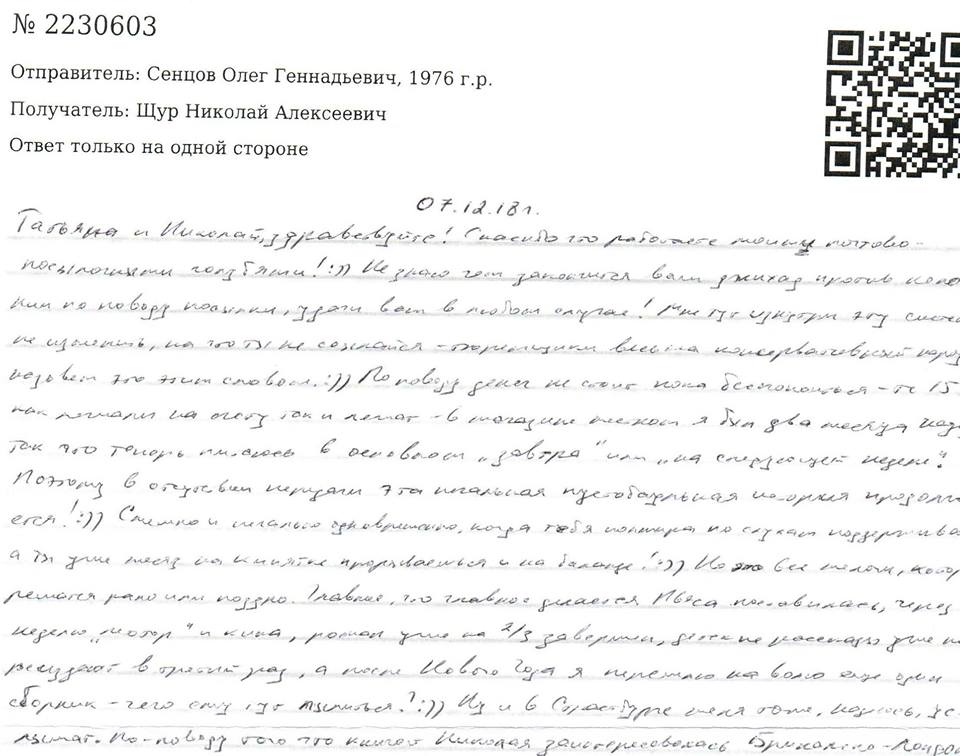 № 2230603
Отправитель: Сенцов Олег Геннадьевич, 1976 г.р.
Получатель: Щур Николай Алексеевич
Ответ только на одной стороне
07.12.18г.
Татьяна и Николай, здравствуйте! Спасибо что работаете моими почтово-
посылочными голубями! :)) Не знаю чем закончится ваш джихад против
по поводу посылки, удачи вам в любом случае! Мне тут изнутри эту
не изменить, на что ты не ссылайся - тюремщики весьма консервативный народ
назовем это этим словом. :)) По поводу денег не стоит пока беспокоиться - те 15
как лежали на счету так и лежат - в магазине я был два месяца
так что теперь в основном „завтра" или „на следующей неделе".
Поэтому в отсутствии передачи эта печальная история
ется! :)) Смешно и печально одновременно, когда тебя по слухам
а ты уже месяц на кипятке и на баланде! :)) Но это все мелочи,
решатся рано или поздно. Главное, что главное делается Пьеса поставилась, через
неделю „мотор" и кина, роман уже на 2/3 завершен, детские рассказы уже
в третий раз, а после Нового Года я перешлю на волю еще один
сборник - чего ему тут пылиться? :)) Ну и в Страсбурге меня тоже, надеюсь, ус-
лышат. По-поводу того что книгой Николая заинтересовалась